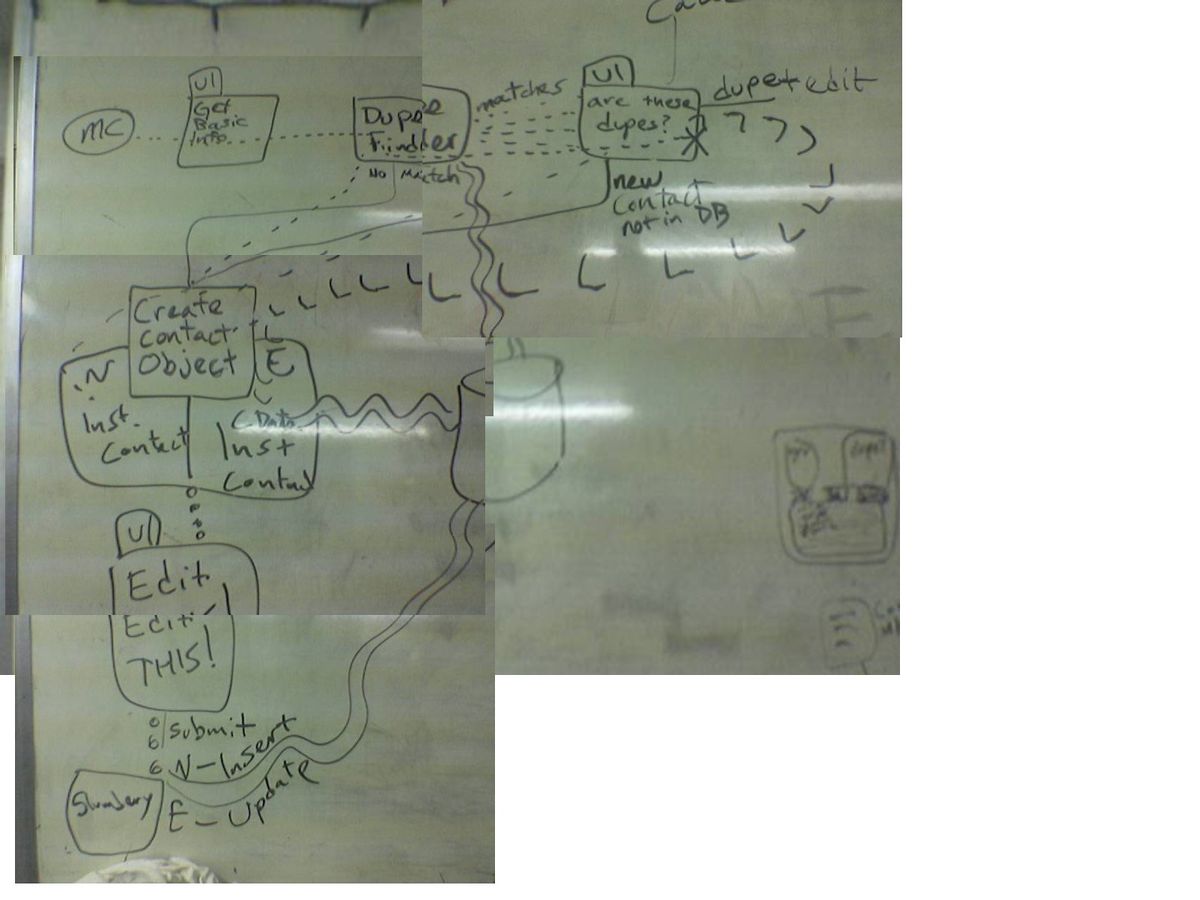 UI
Get
Basic
Info
MC
Dupe
Finder
No Match
matches
UI
are these
dupes?
dupe+edit
new
contact
not in DB
Create
Contact
Object
N
Inst.
Contact
E
Data
Inst
Contact
UI
Edit
Edit
THIS!
submit
N-Insert
E-Update